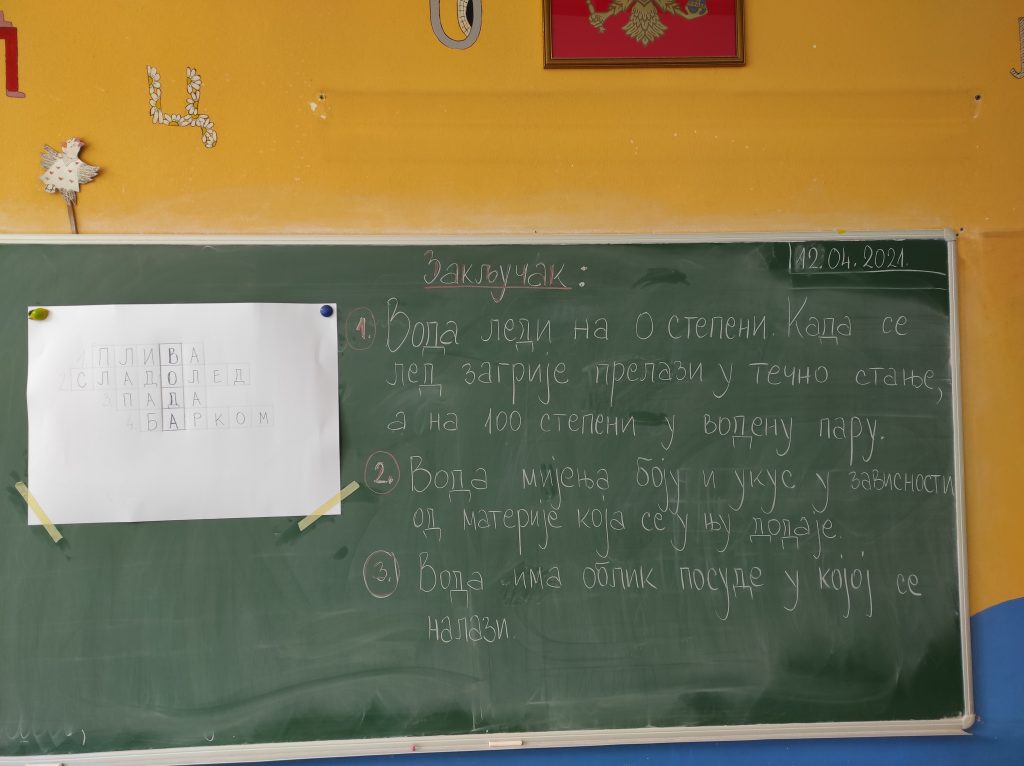 Ц
12.04.2021.
Закључак:
1. Вода леди на 0 степени. Када се
лед загрије прелази у течно стање,
а на 100 степени у водену пару.
2. Вода мијења боју и укус у зависности
од материје која се у њу додаје.
3. Вода има облик посуде у којој се
налази.
1. ПЛИВА
2. СЛАДОЛЕД
3. ПАДА
4. БАРКОМ